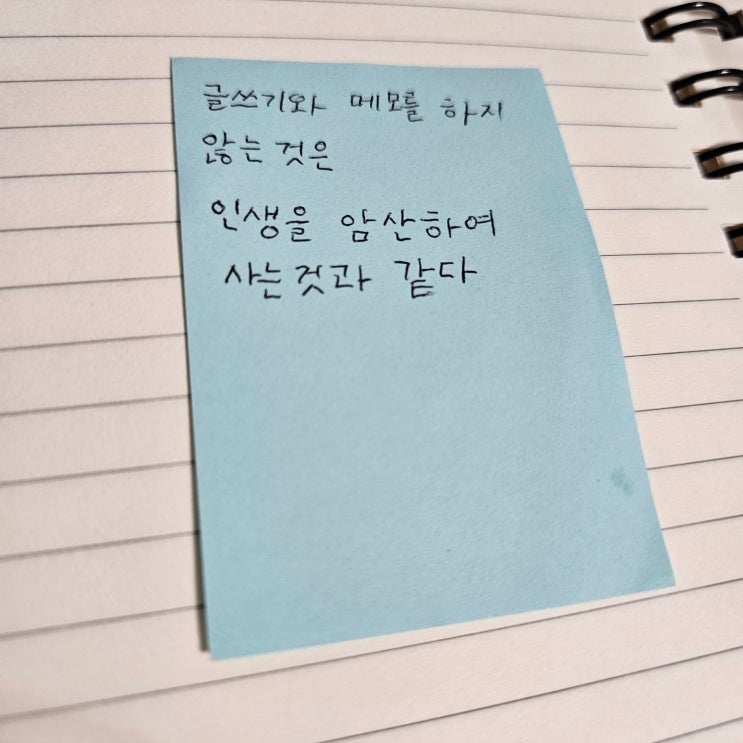 글쓰기와 메모를 하지
않는 것은
인생을 암산하여
사는 것과 같다